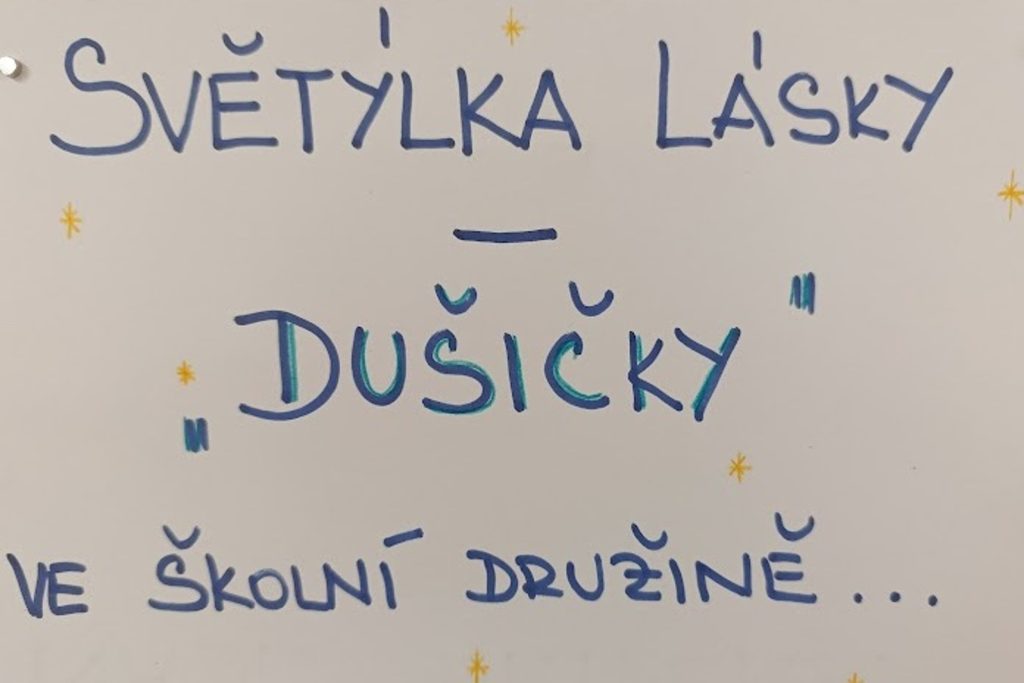 SVĚTÝLKA LÁSKY
–
„DUŠIČKY"
VE ŠKOLNÍ DRUŽINĚ...